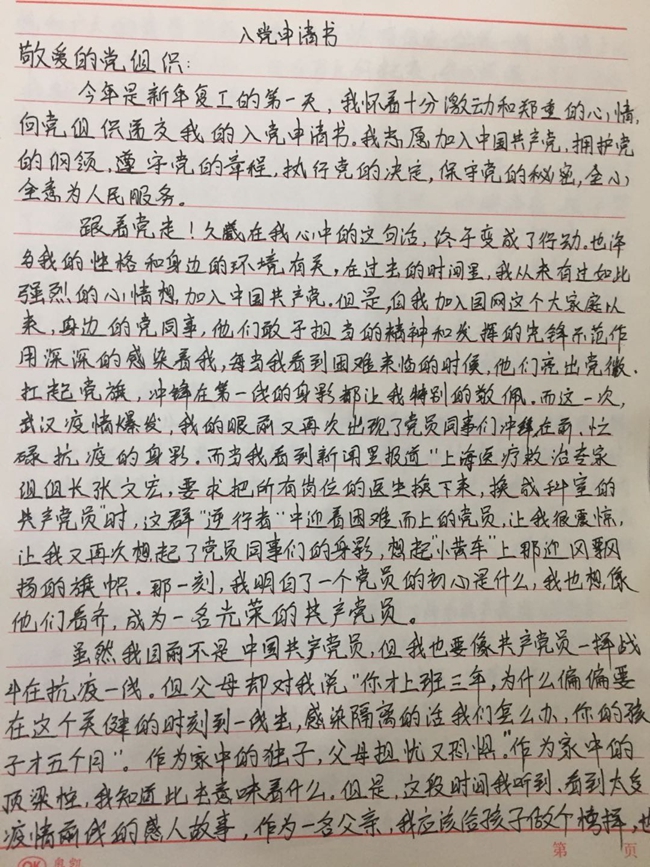 入党申请书
敬爱的党组织:
今年是新年复工的第一天,我怀着十分激动和郑重的心情,
向党组织递交我的入党申请书。我志愿加入中国共产党,拥护党
的纲领,遵守党的章程,执行党的决定,保守党的秘密,全心
全意为人民服务。
跟着党走!久藏在我心中的这句话,终于变成了行动。也许
与我的性格和身边的环境有关,在过去的时间里,我从未有过如此
强烈的心情想加入中国共产党。但是,自我加入国网这个大家庭以
来,身边的党同事,他们敢于担当的精神和发挥的先锋示范作
用深深的感染着我,每当我看到困难来临的时候,他们亮出党徽.
扛起党旗,冲锋在第一线的身影都让我特别的敬佩。而这一次,
武汉疫情爆发,我的眼前又再次出现了党员同事们冲锋在前、忙
碌抗疫的身影。而当我看到新闻里报道"上海医疗救治专家
组组长张文宏,要求把所有岗位的医生换下来,换成科室的
共产党员"时,这群"逆行者"中迎着困难而上的党员,让我很震惊,
让我又再次想起了党员同事们的身影,想起"小黄车"上那迎风飘
扬的旗帜。那一刻,我明白了一个党员的初心是什么,我也想像
他们看齐,成为一名光荣的共产党员。
虽然我目前不是中国共产党员,但我也要像共产党员一样战
斗在抗疫一线。但父母却对我说"你才上班三年,为什么偏偏要
在这个关健的时刻到一线去,感染隔离的话我们怎么办,你的孩
子才五个月"。作为家中的独子,父母担忧又恐惧."作为家中的
顶梁柱,我知道此去意味着什么。但是,这段时间我听到、看到太多
疫情前线的感人故事,作为一名父亲,我应该给孩子做个榜样,也
OK 奥穷
第 页